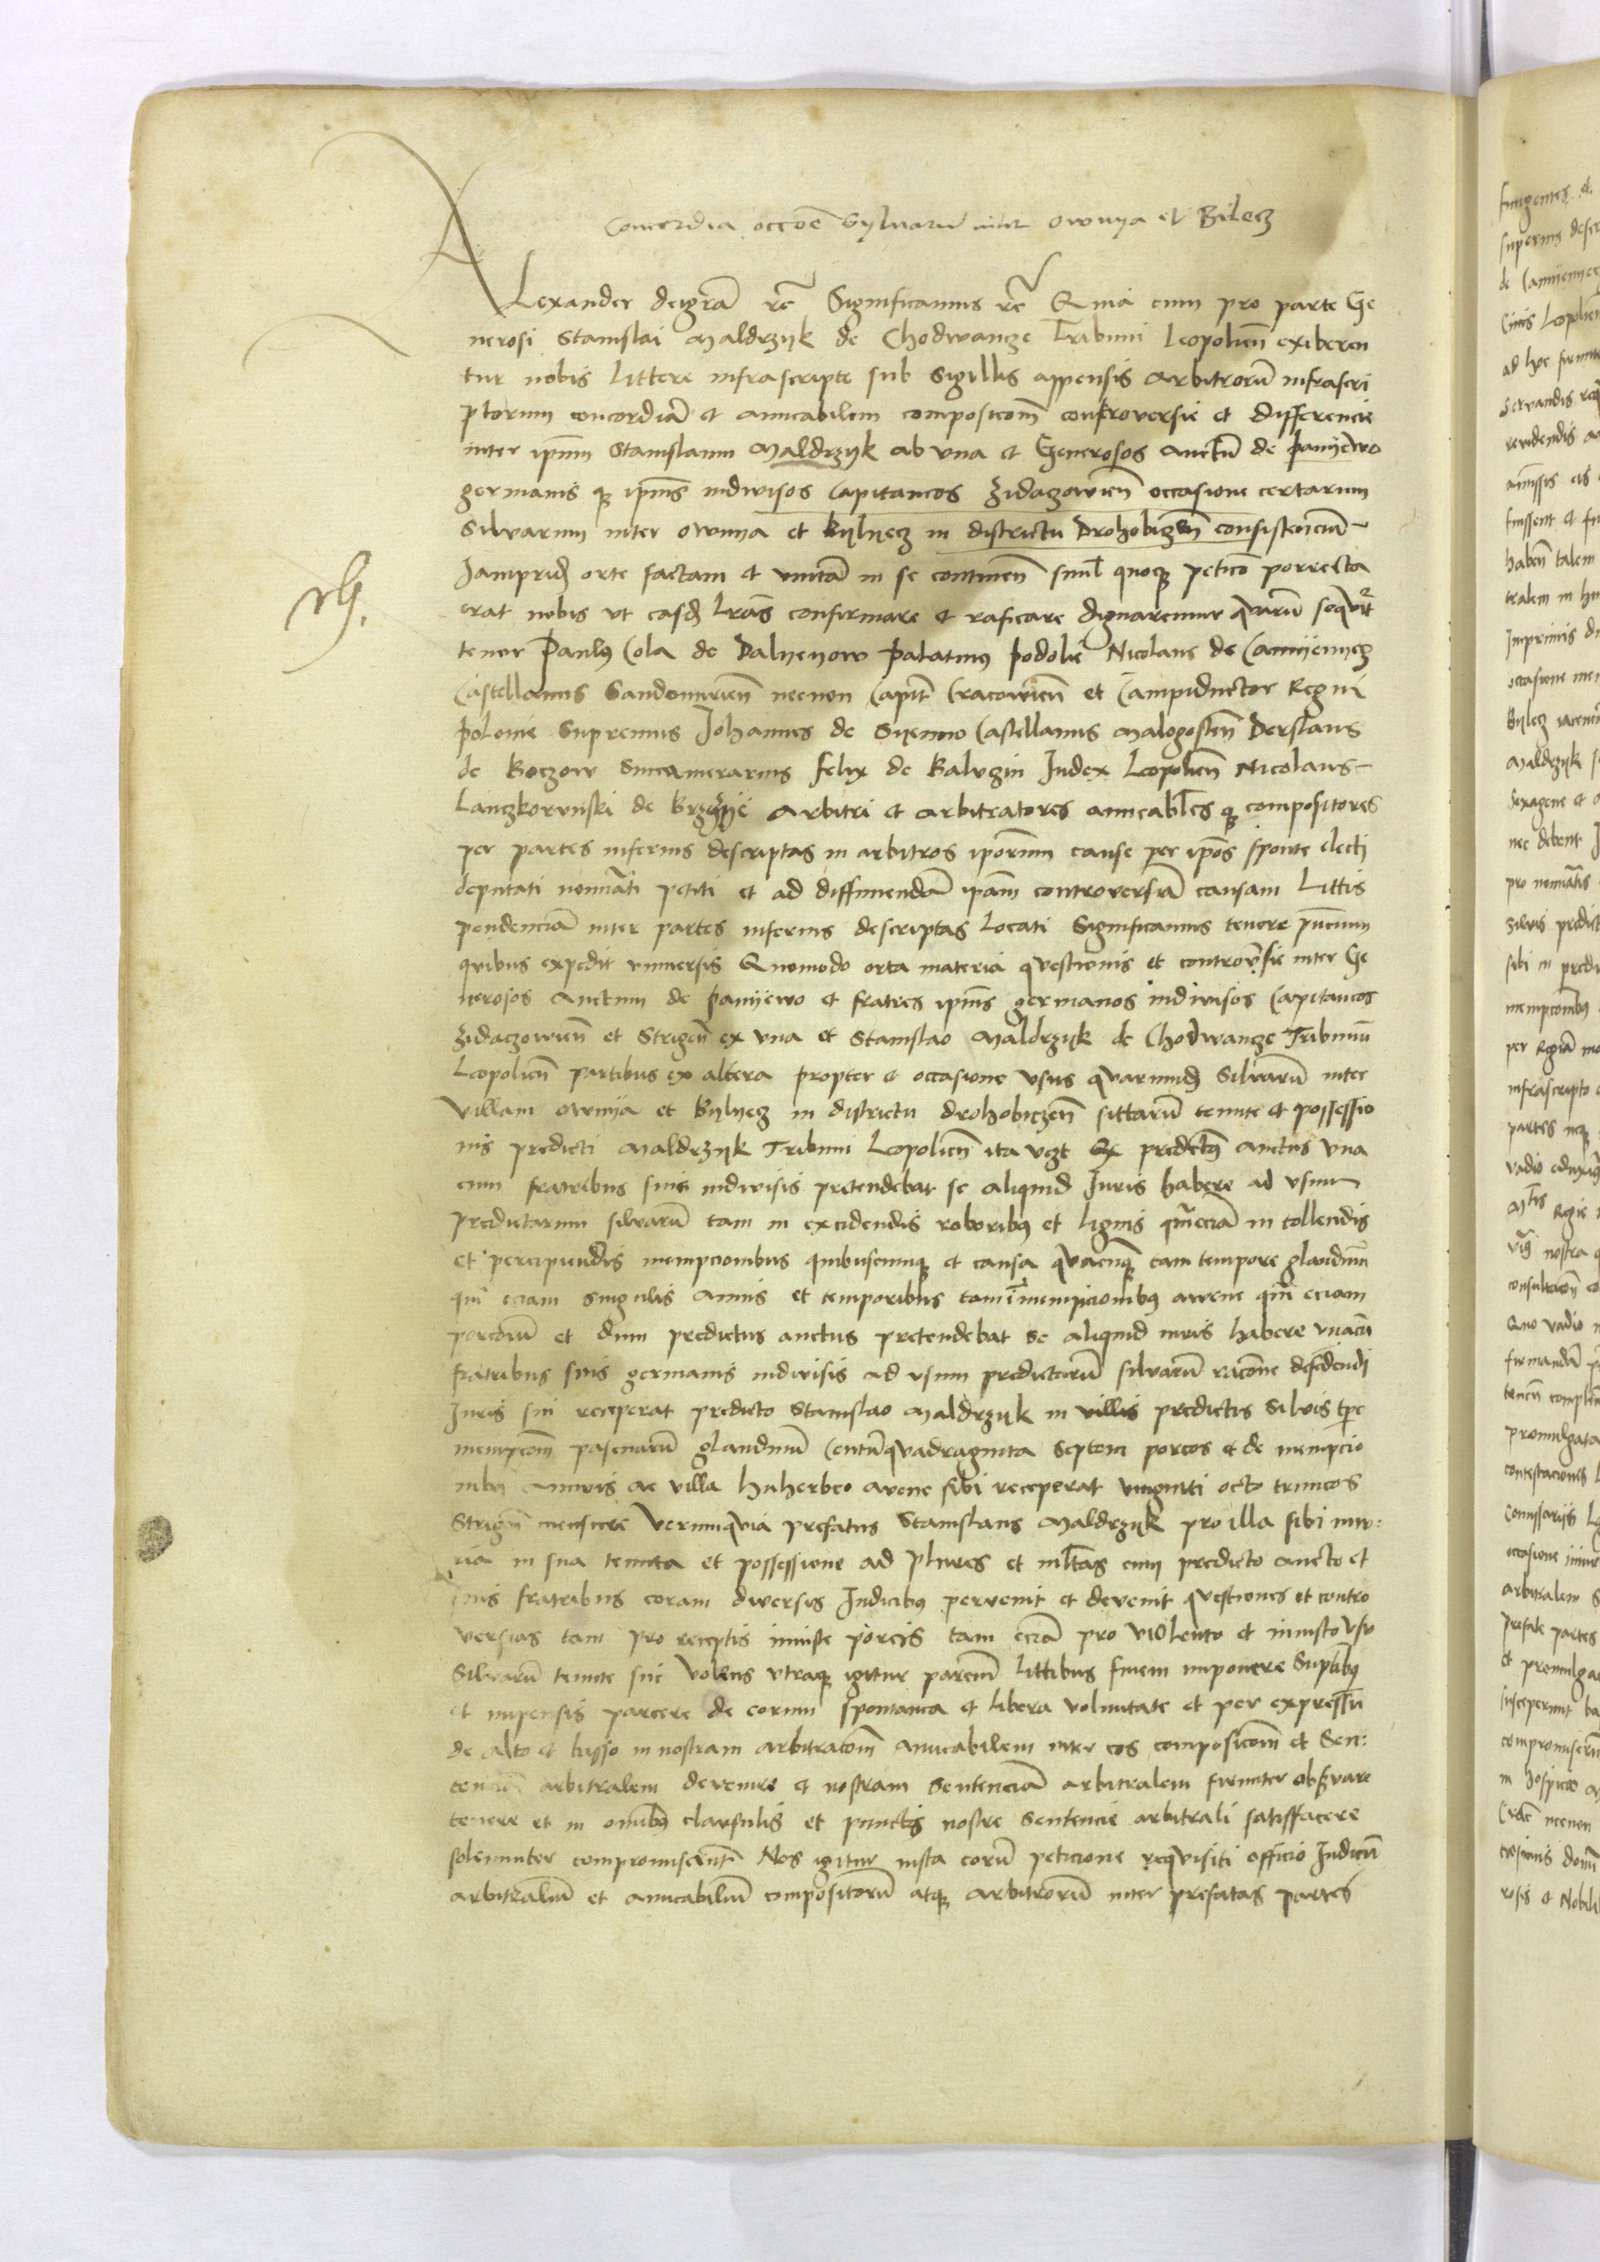 Concordia occoe Sylvaru inter Ownya et Bilecz
Alexander deigra rc Significamus rc Quia cum pro parte Ge
nerosi Stanislai Maldrzyk de Chodwancze Tribuni Leopolien exiberen
tur nobis littere infrascripte sub sigillis appensis arbitroru infrascri
ptorum concordia et amicabilem composicom controversie et differencie
inter ipm Stanislaum Maldrzyk ab una et Generosos Anctu de panyewo
germanis q ipius indivisos Capitaneos Zidaczowien occasione certarum
Silvarum inter Ownya et Bylyecz in districtu Drohobiczen consistenciu
Jamprid orte factam et unita in se continen siml quoq peticio porrecta
erat nobis ut easd lras confirmare et raficare dignaremur quaru sequitr
tenor Paulus Cola de Dalyeyow palatinus podolie Nicolaus de Camyenyecz
Castellanus Sandomirien necnon Capit Cracovien et Campiductor Regni
polonie Supremus Johannes de Syenno Castellanus Malogosten Derslaus
de Boczow Succamerarius felix de Kalvgin Judex Leopolien Nicolaus
Lanczkorunski de Brzezye arbitri et arbitratores amicables q compositores
per partes inferius descriptas in arbitros iporum cause per ipos sponte electi
deputati nominati petiti et ad diffiniendam ipam controversia causam littis
pendencia inter partes inferius descriptas locati Significamus tenore pncium
quibus expedit universis Quomodo orta materia questionis et controvsie inter Ge
nerosos Anctum de panyewo et fratres ipius germanos indivisos Capitaneos
Zidaczowien et Strigen ex una et Stanislao Maldrzyk de Chodwancze Tribunu
Leopolien partibus ex altera propter et occasione usus quarumd Silvaru inter
villam Ownya et Bylyecz in districtu drohobiczen sittaru tenute et possessio
nis predicti Maldrzyk Tribuni Leopolien ita vczt Qz predictus Anctus una
cum fratribus suis indivisis pretendebat se aliquid Juris habere ad usum
predictarum silvaru tam in excidendis roboribus et lignis quecia in tollendis
et percipiendis mempcionibus quibuscunq et causa quacunq tam tempore glandinu
qua eciam singulis annis et temporibus tam mempcionibus avene qua eciam
porcoru et dum predictus anctus pretendebat se aliquid iuris habere unacu
fratribus suis germanis indivisis ad usum predictaru silvaru racone defendendi
Juris sui receperat predicto Stanislao Maldrzyk in villis predictis Silvis tpe
mempcom pasenaru glandinu Centuquadraginta Septem porcos et de mempcio
nibus avenis ac villa Huherbco avene sibi receperat viginti octo truncos
Strign mensure Verumquia prefatus Stanislaus Maldrzyk pro illa sibi iniu
ria in sua tenuta et possessione ad plures et mltas cum predicto ancto et
suis fratribus coram diversis Judicibus pervenit et devenit questiones et contro
versias tam pro receptis iniuste porcis tam ecia pro violento et iniusto usu
Silvaru tenute sue volens utraq igitur parcium littibus finem imponere Suptibus
et impensis parcere de eorum spontanea et libera voluntate et per expressu
de alto et basso in nostram arbitracom amicabilem inter eos composicom et Sen
tencia arbitralem devenire et nostram sentencia arbitralem firmiter observare
tenere et in omnibus clausulis et punctis nostre sentencie arbitrali satisffacere
solemniter compromiserunt Nos igitur iusta eoru peticione requisiti officio Judicu
arbitraliu et amicabiliu compositoru atq arbitroru inter prefatas partes